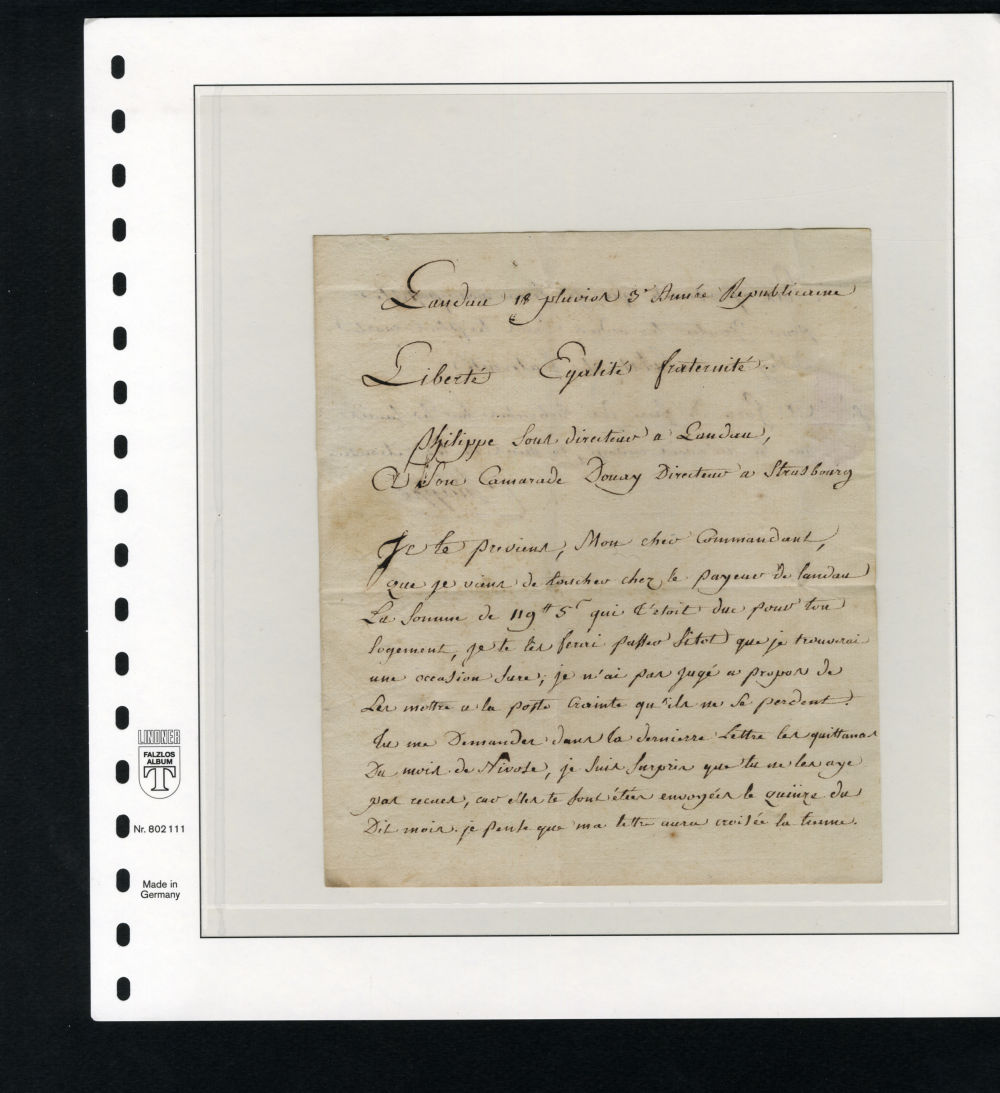 Landau 18 pluvios 3e Année Republicaine
Liberté Egalité fraternité.
Philippe Sous directeur a Landau,
A Son Camarade Douay Directeur a Strasbourg
Je te previens, Mon cher Commandant,
que je viens de toucher chez le payeur de landau
La Somme de 119 tt 5 s qui t'etoit due pour ton
logement, je te les ferai passer Sitot que je trouverai
une occasion sure; je n'ai pas jugé a propos de
Les mettre a la poste crainte qu'ils ne se perdent.
Tu me Demandes dans ta dernierre Lettre les quittances
Du mois de Nivose, je Suis Surpris que tu ne les aye
pas recues, car elles te sont étées envoyées le quinze du
Dit mois. je pense que ma lettre aura croisée la tienne.
LINDNER
FALZLOS
ALBUM
T
Nr. 802 111
Made in
Germany